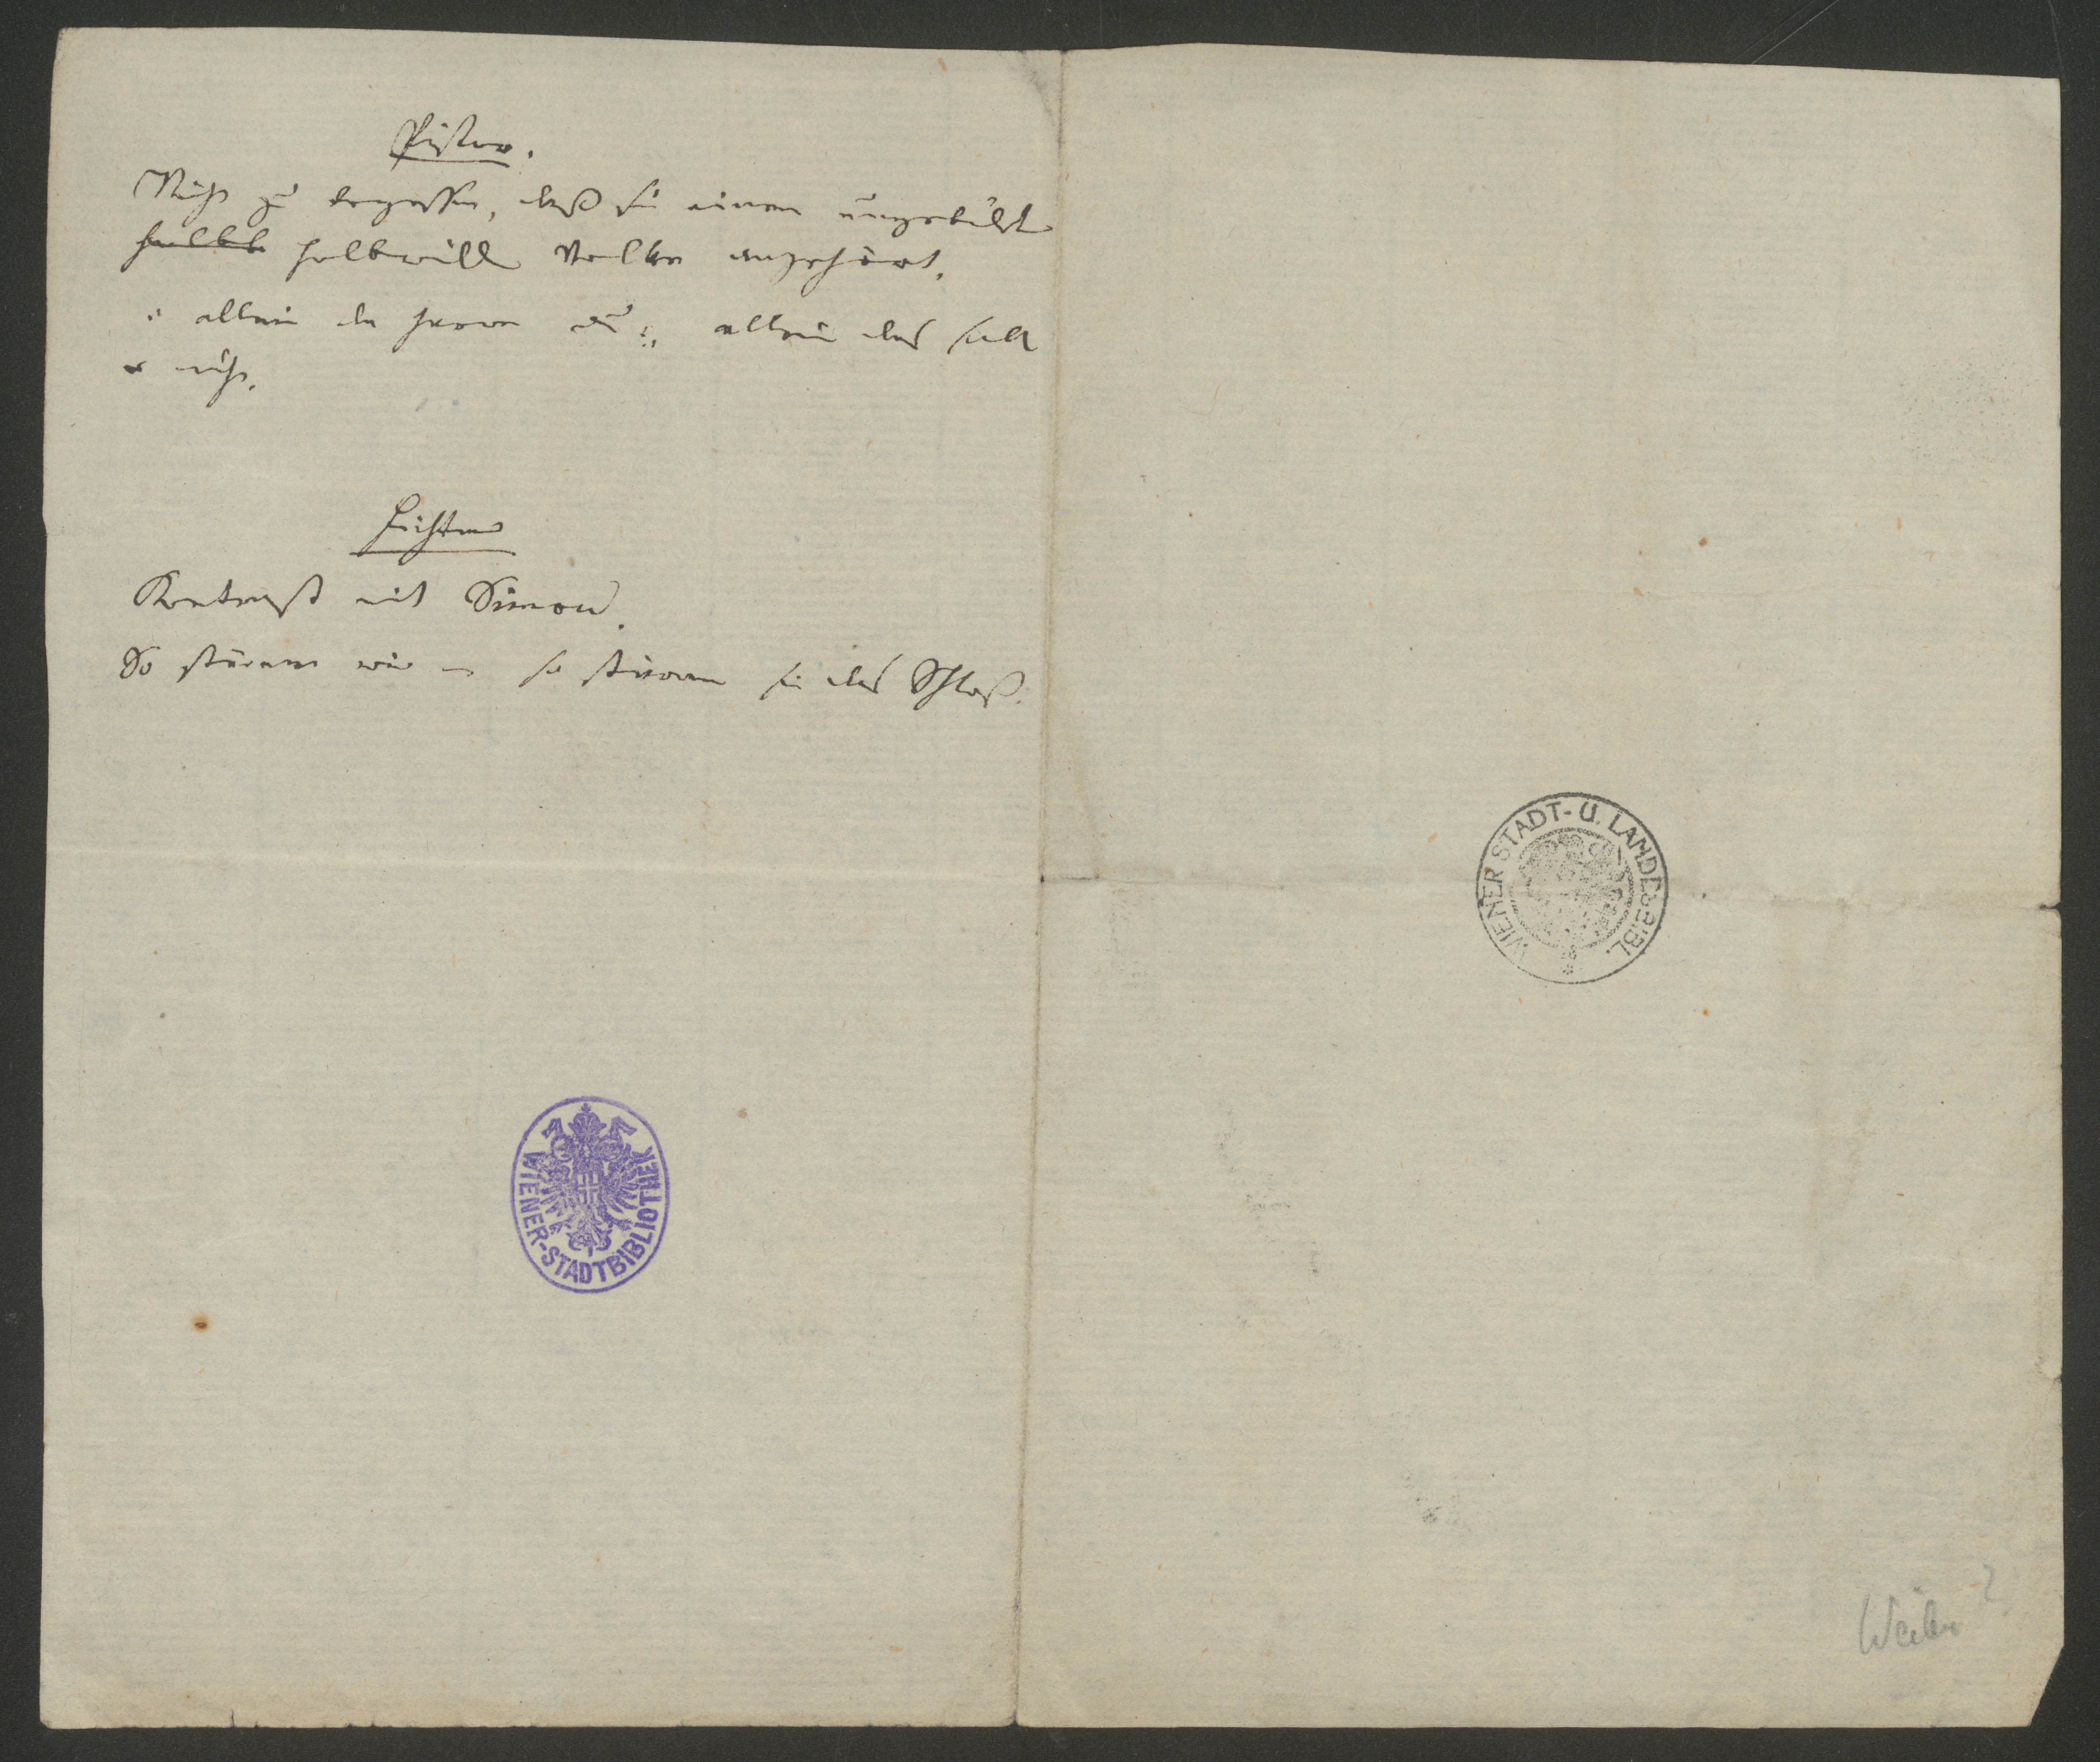 Nicht zu vergessen, daß sie einem ungebildet
halbwilden Volke angehört.
allein allein das soll
er nicht.
Kontrast mit Simon.
So stürmen wir – so stürmen sie das Schloß.
WIENER-STADTBIBLIOTHEK
WIENER STADT- U. LANDESBIBL.